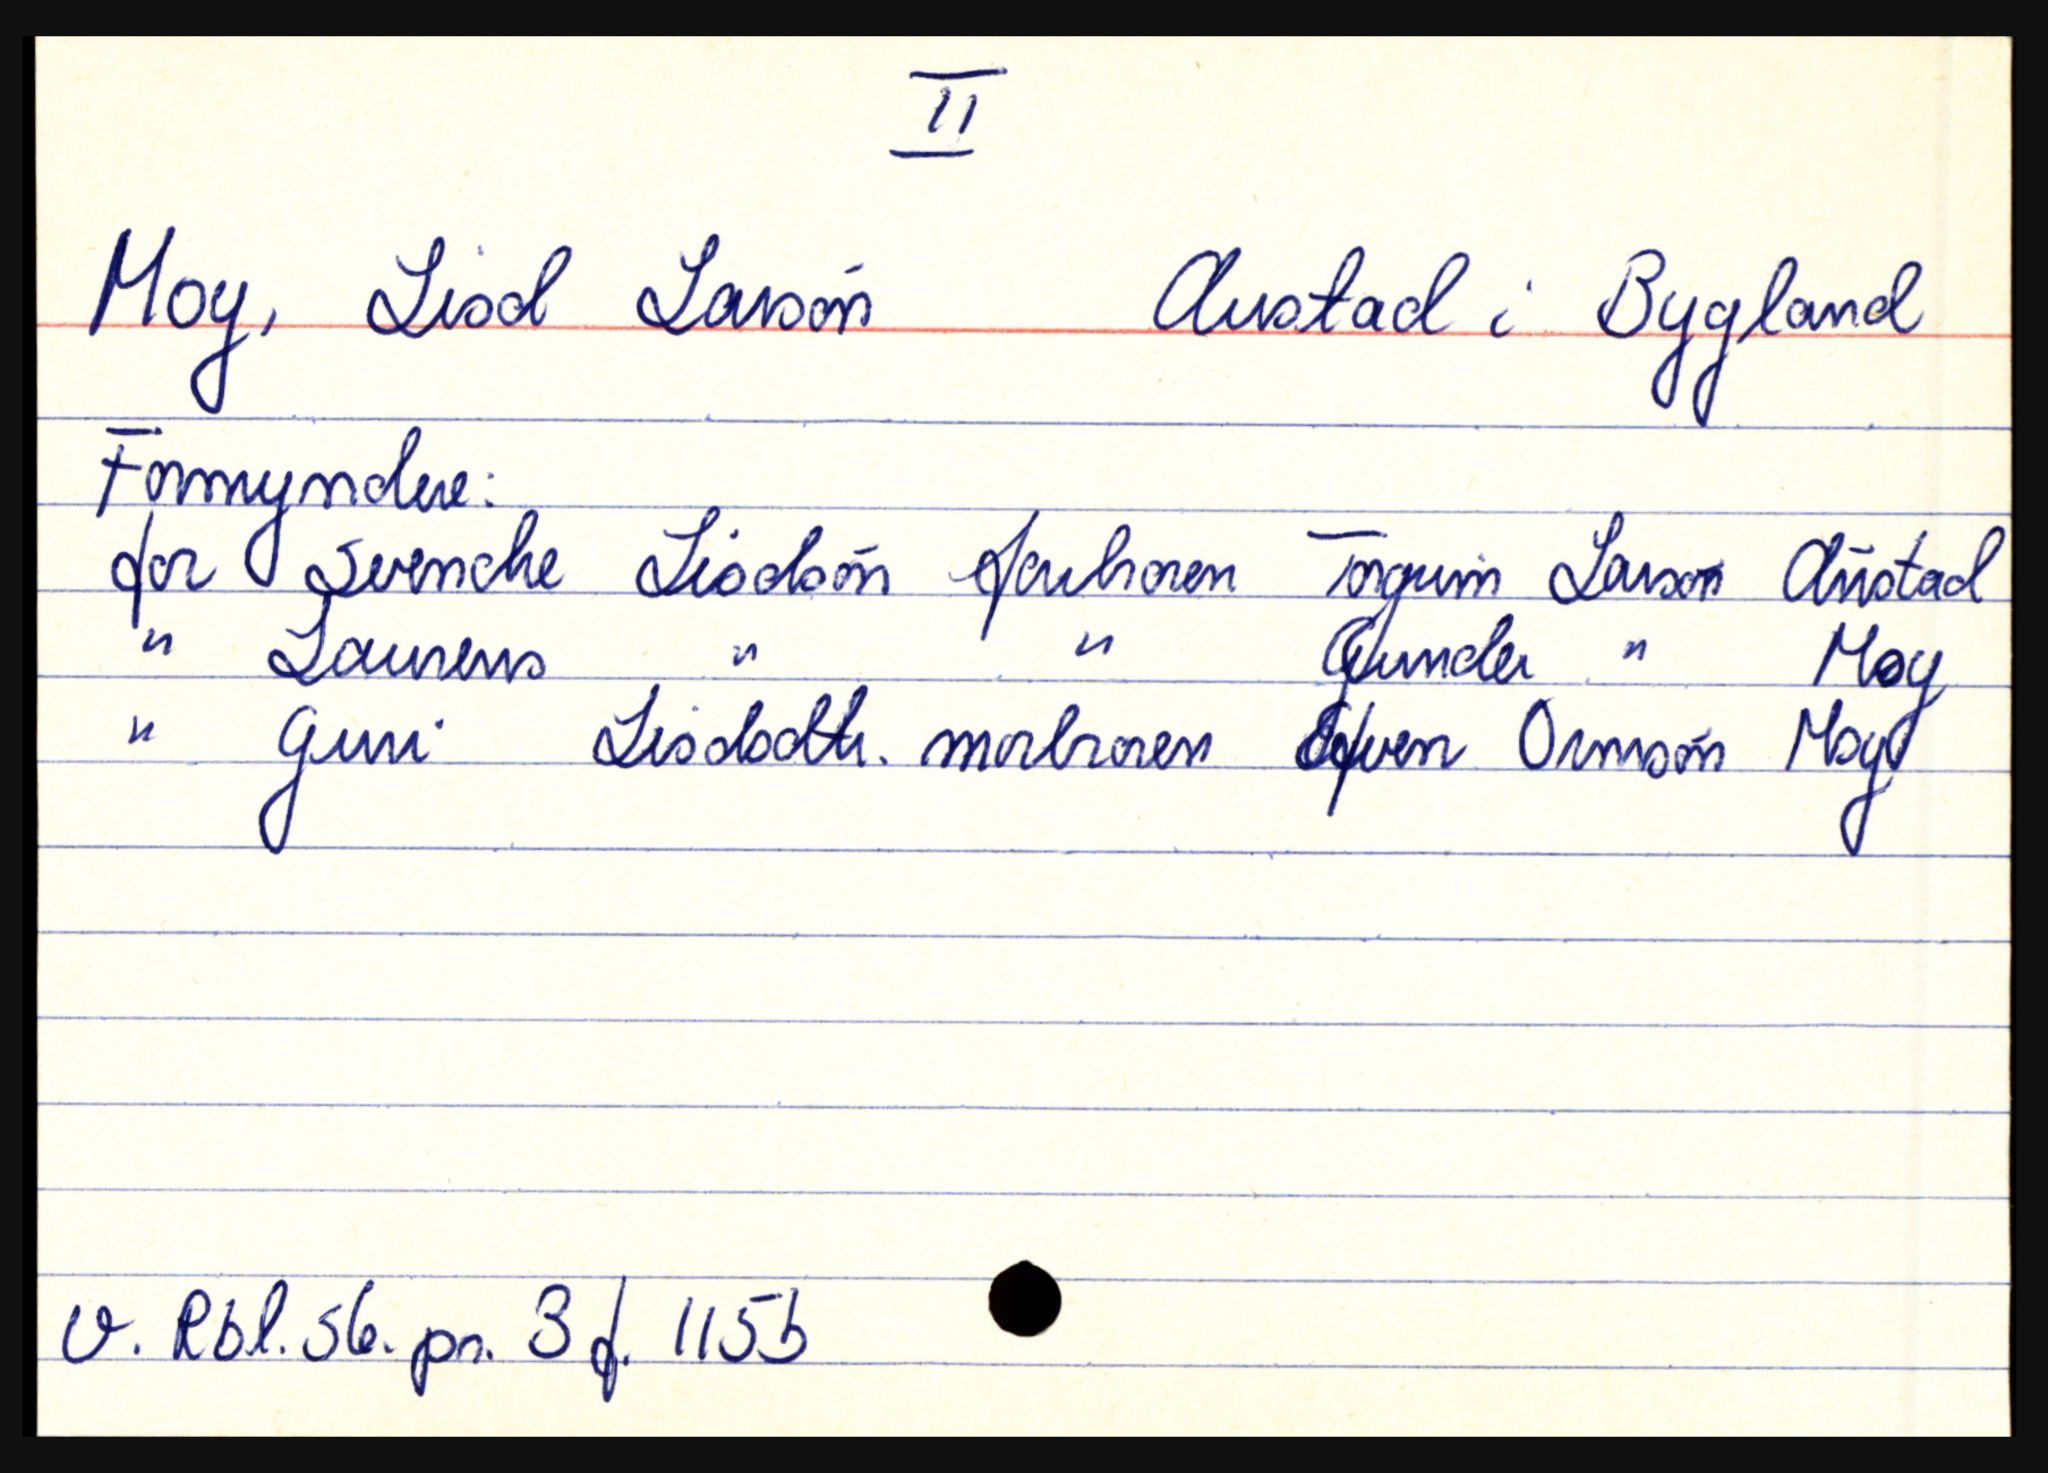 II
Moy, Lisd Larsön Austad i Bygland
Formyndere:
for Svencke Lisdsön farbroren Torguin Larson Aŭstad
" Laurens " " Gunder " Moy
" Guri Lisdsdtr. morbroren Efven Ormsön Moy
v. Rbl. S6. pr. 3 f. 115b